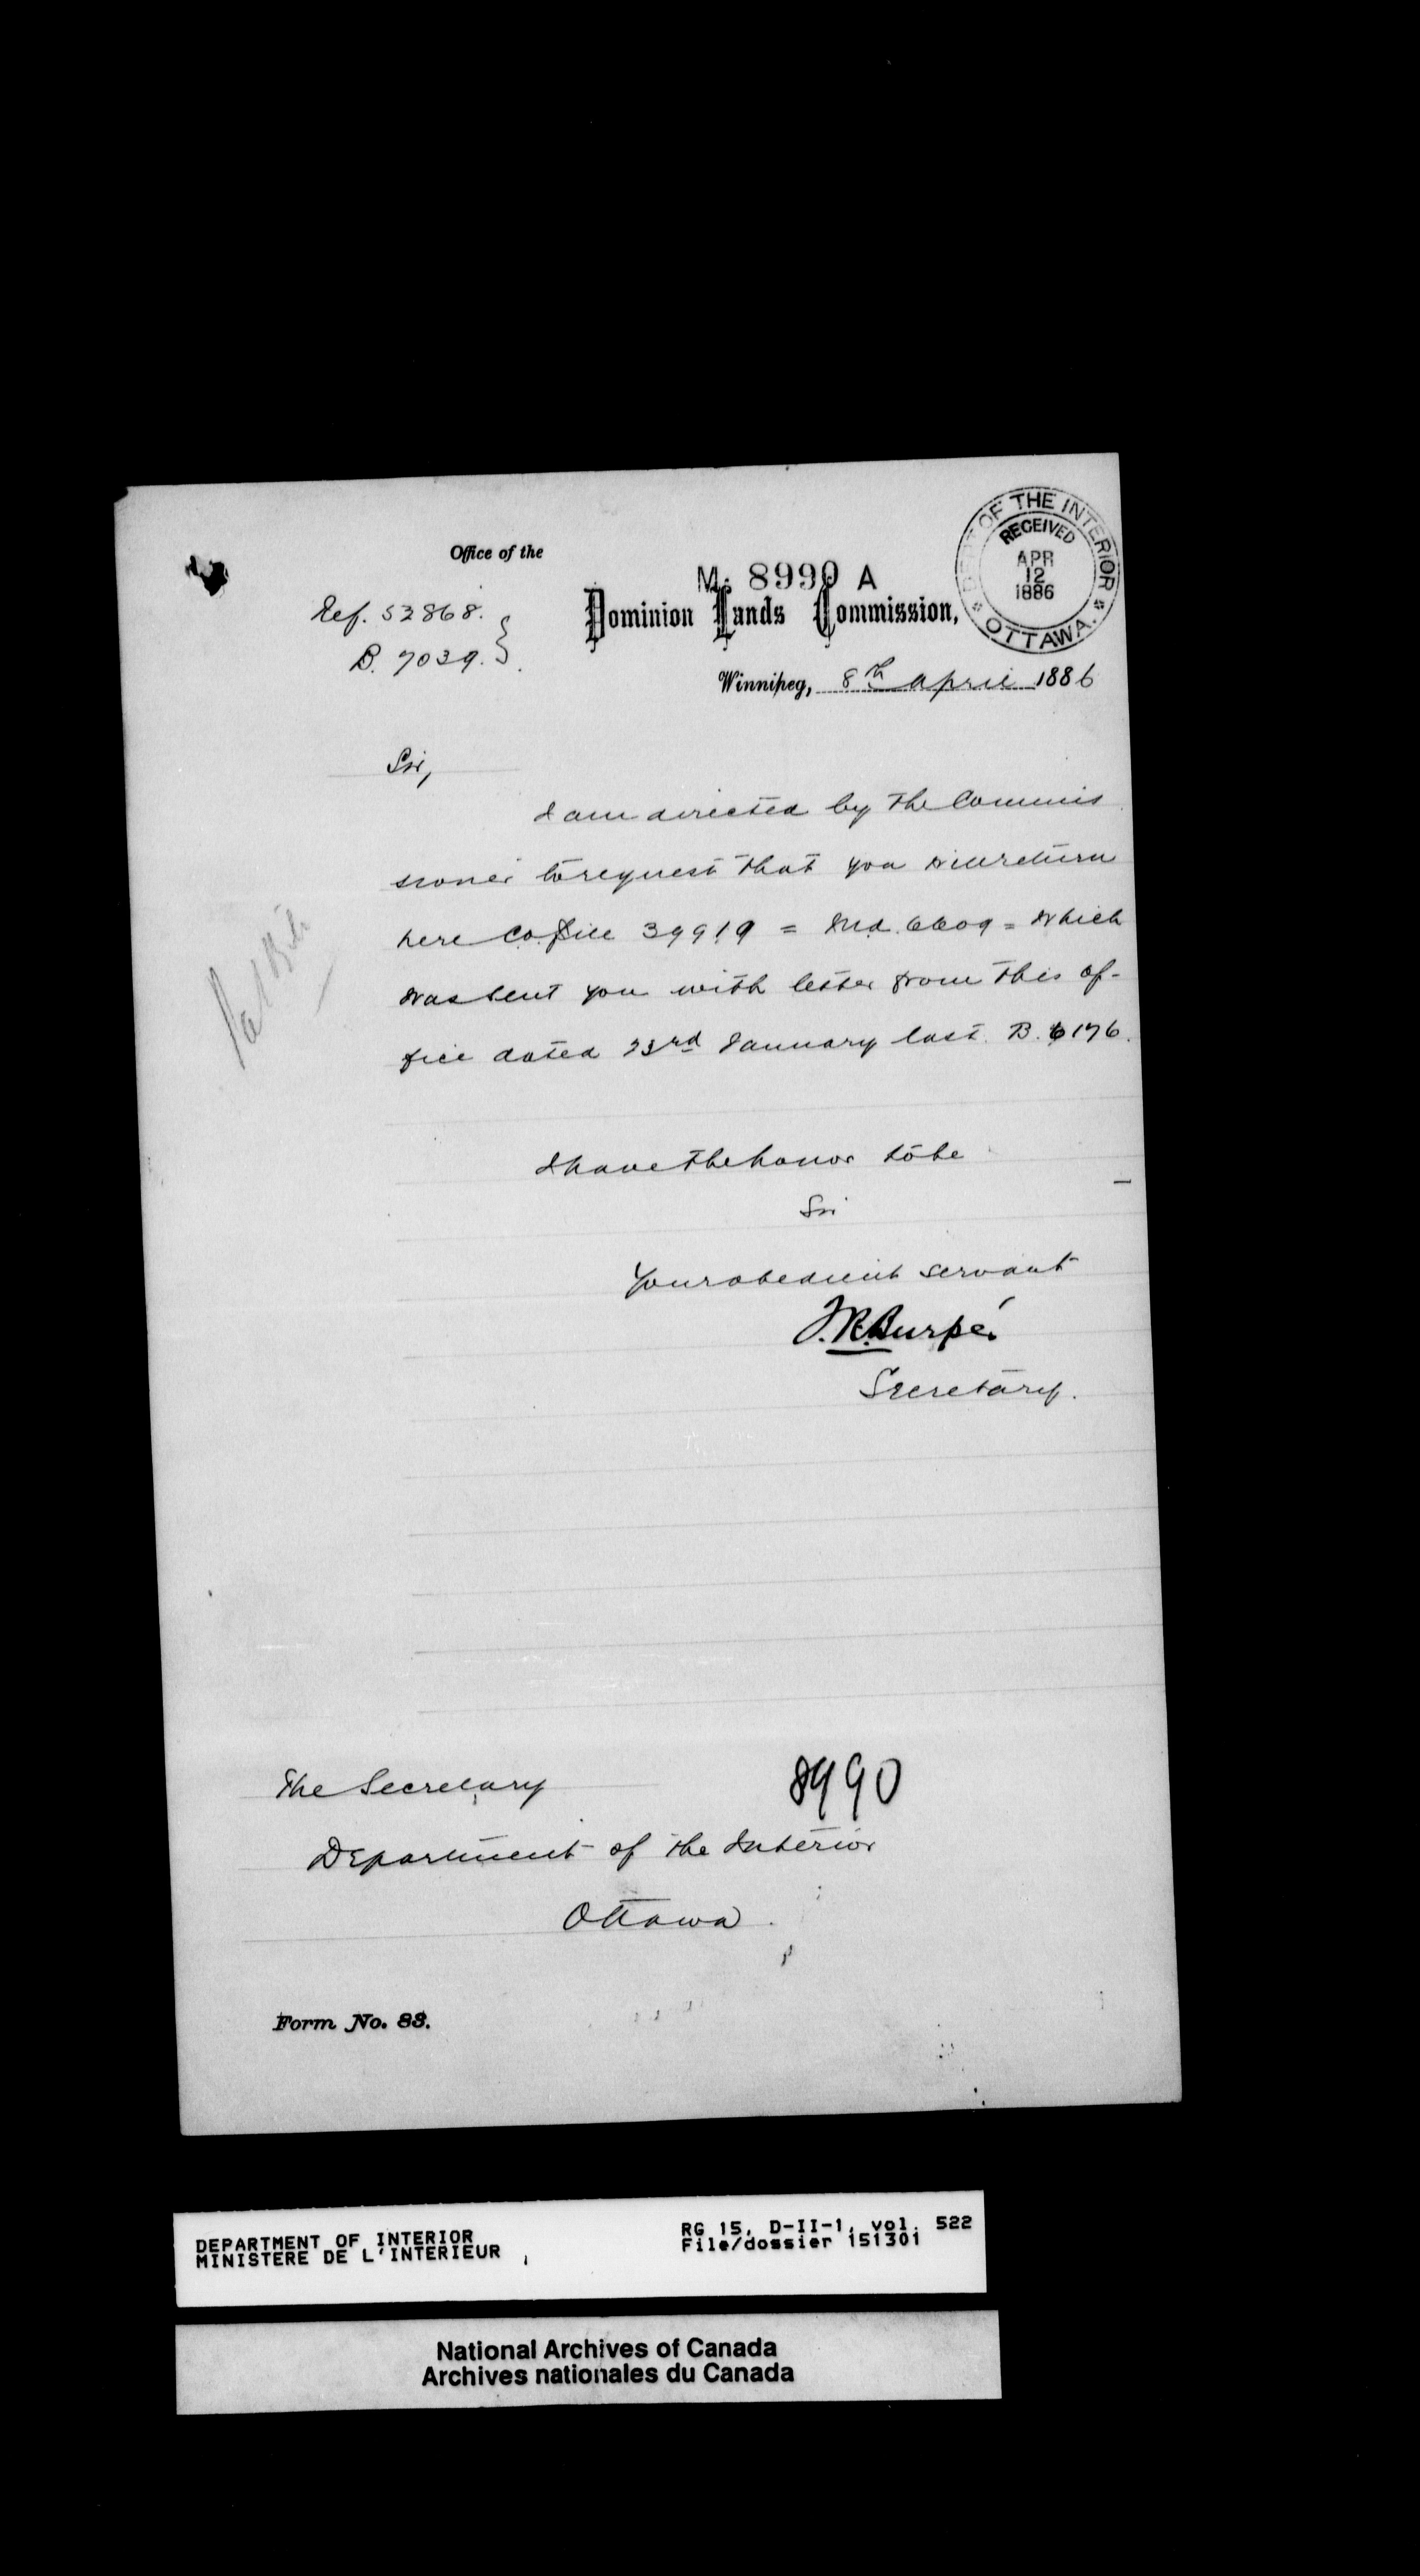 Office of the
M. 8990 A
Dominion Lands Commission,
DEPT OF THE INTERIOR
RECEIVED
APR
12
1886
OTTAWA.
Ref. 52868.
B. 7039.
Winnipeg, 8th April 1886
Sir,
I am directed by the Commis
sioner to request that you will return
here Co. file 39919 = Ind. 6609 = which
was sent you with letter from this of-
fice dated 23rd January last. B. 6176.
I have the honor to be
Sir
Your obedient servant
J.R. Burpé
Secretary.
The Secretary
8990
Department of the Interior
Ottawa.
Form No. 83.
DEPARTMENT OF INTERIOR
MINISTERE DE L'INTERIEUR
RG 15, D-II-1, vol. 522
File/dossier 151301
National Archives of Canada
Archives nationales du Canada